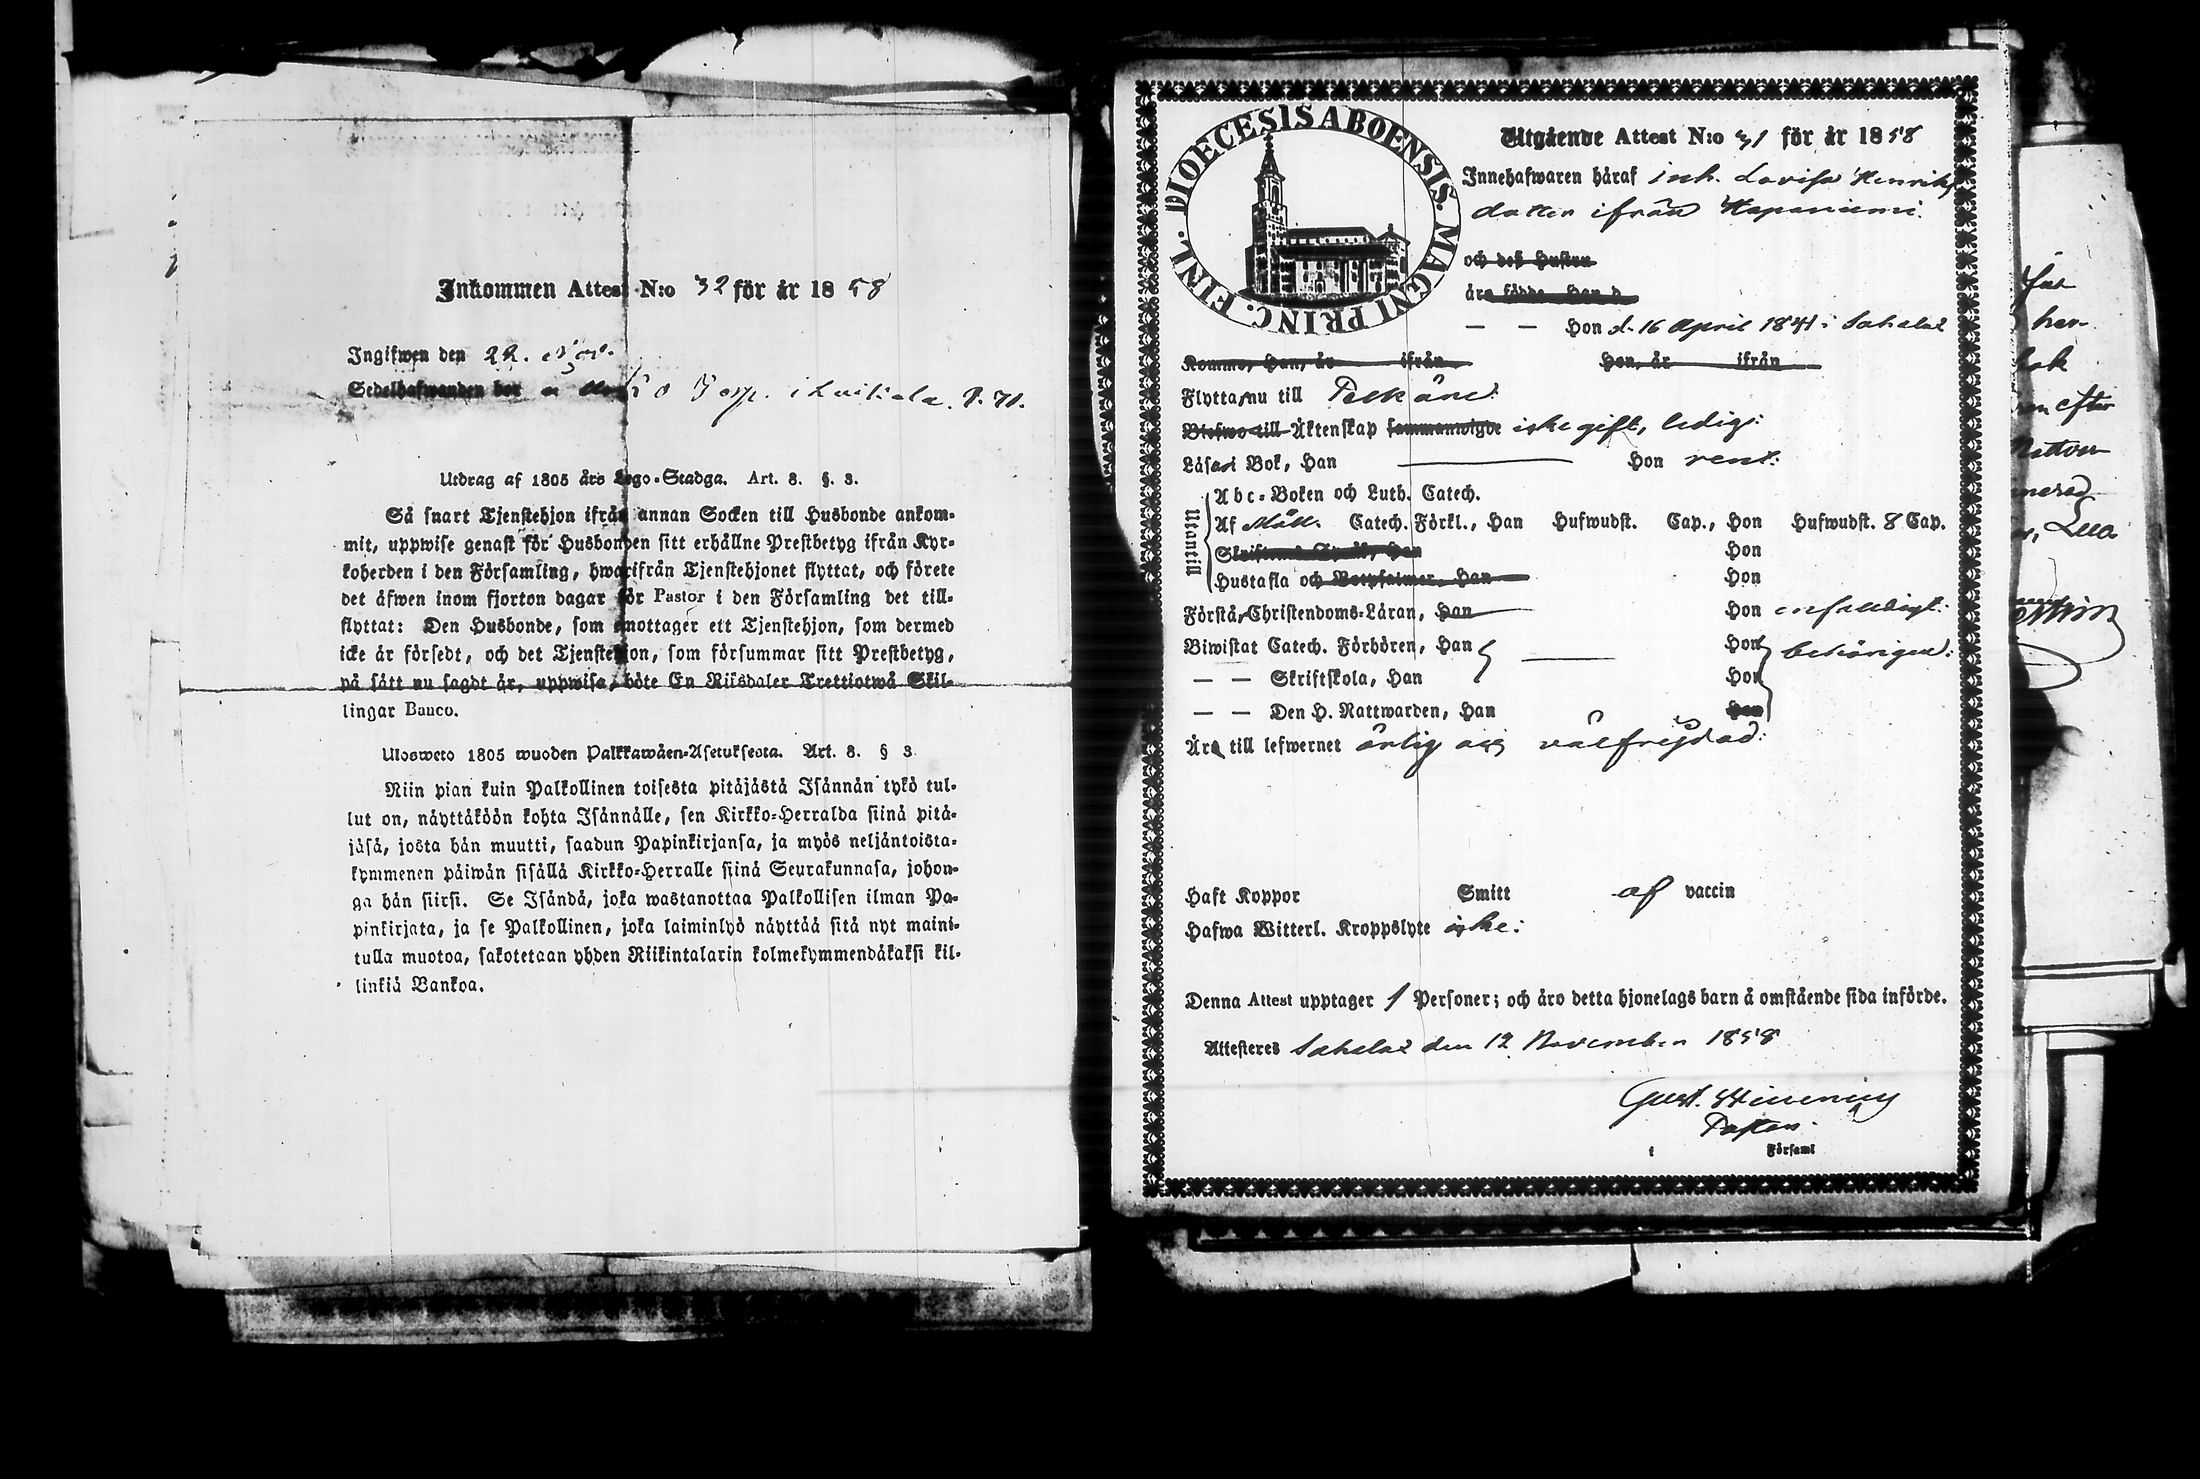 Inkommen Attest N:o 32 för år 1858
Ingifwen den 22. Nov.
Sedelhafwanden bor å Torp. i Luikala. P. 71.
Utdrag af 1805 års Lego-Stadga. Art. 8. §. 3.
Så snart Tjenstehjon ifrån annan Socken till Husbonde ankom-
mit, uppwise genast för Husbonden sitt erhållne Prestbetyg ifrån Kyr-
koherden i den Församling, hwarifrån Tjenstehjonet flyttat, och förete
det äfwen inom fjorton dagar för Pastor i den Församling det till-
flyttat: Den Husbonde, som emottager ett Tjenstehjon, som dermed
icke är försedt, och det Tjenstehjon, som försummar sitt Prestbetyg,
på sätt nu sagdt är, uppwisa, böte En Riksdaler Trettiotwå Skil-
lingar Banco.
Ulosweto 1805 wuoden Palkkawäen-Asetuksesta. Art. 8. § 3
Niin pian kuin Palkollinen toisesta pitäjästä Isännän tykö tul-
lut on, näyttäköön kohta Isännälle, sen Kirkko-Herralda siinä pitä-
jäsä, josta hän muutti, saadun Papinkirjansa, ja myös neljäntoista-
kymmenen päiwän sisällä Kirkko-Herralle siinä Seurakunnasa, johon-
ga hän siirsi. Se Isändä, joka wastanottaa Palkollisen ilman Pa-
pinkirjata, ja se Palkollinen, joka laiminlyö näyttää sitä nyt maini-
tulla muotoa, sakotetaan yhden Riikintalarin kolmekymmendäkaksi kil-
linkiä Bankoa.
DIOECESIS ABOENSIS. MAGNI PRINC. FINL.
Utgående Attest N:o 31 för år 1858
Innehafwaren häraf inh. Lovisa Henriks
dotter ifrån Haponiemi.
och deß Hustru
äro födde, Han d.
— — Hon d. 16 April 1841 i Sahalax
Komne, Han, år ifrån Hon, år ifrån
Flytta nu till Pelkäne.
Blefwo till Äktenskap sammanwigde icke gift, ledig:
Läsa i Bok, Han Hon rent:
Utantill
Abc-Boken och Luth. Catech.
Af Möll. Catech. Förkl., Han Hufwudst. Cap., Hon Hufwudst. 8 Cap.
Skriftens Språk, Han Hon
Hustafla och Botpsalmer, Han Hon
Förstå Christendoms-Läran, Han Hon enfaldigt:
Biwistat Catech. Förhören, Han Hon behörigen:
— — Skriftskola, Han Hon
— — Den H. Nattwarden, Han Hon
Äro till lefwernet ärlig och välfrejdad:
Haft Koppor Smitt af vaccin
Hafwa Witterl. Kroppslyte icke:
Denna Attest upptager 1 Personer; och äro detta hjonelags barn å omstående sida införde.
Attesteres Sahalax den 12 November 1858
Gust. Hinming
Pastor.
i Församl
efter